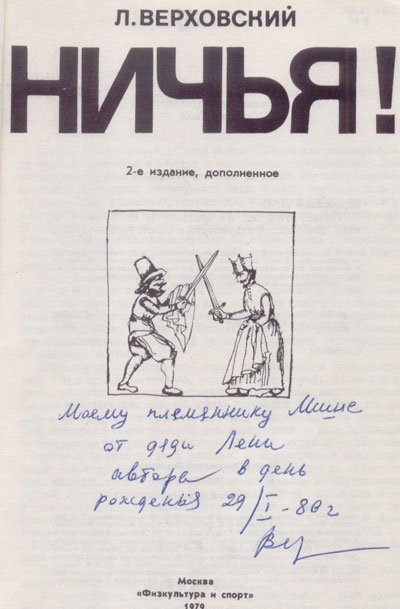 Л. ВЕРХОВСКИЙ
НИЧЬЯ!
2-е издание, дополненное
Моему племяннику Мише
от дяди Лени
автора в день
рожденья 29/I-80 г
Москва
«Физкультура и спорт»
1979